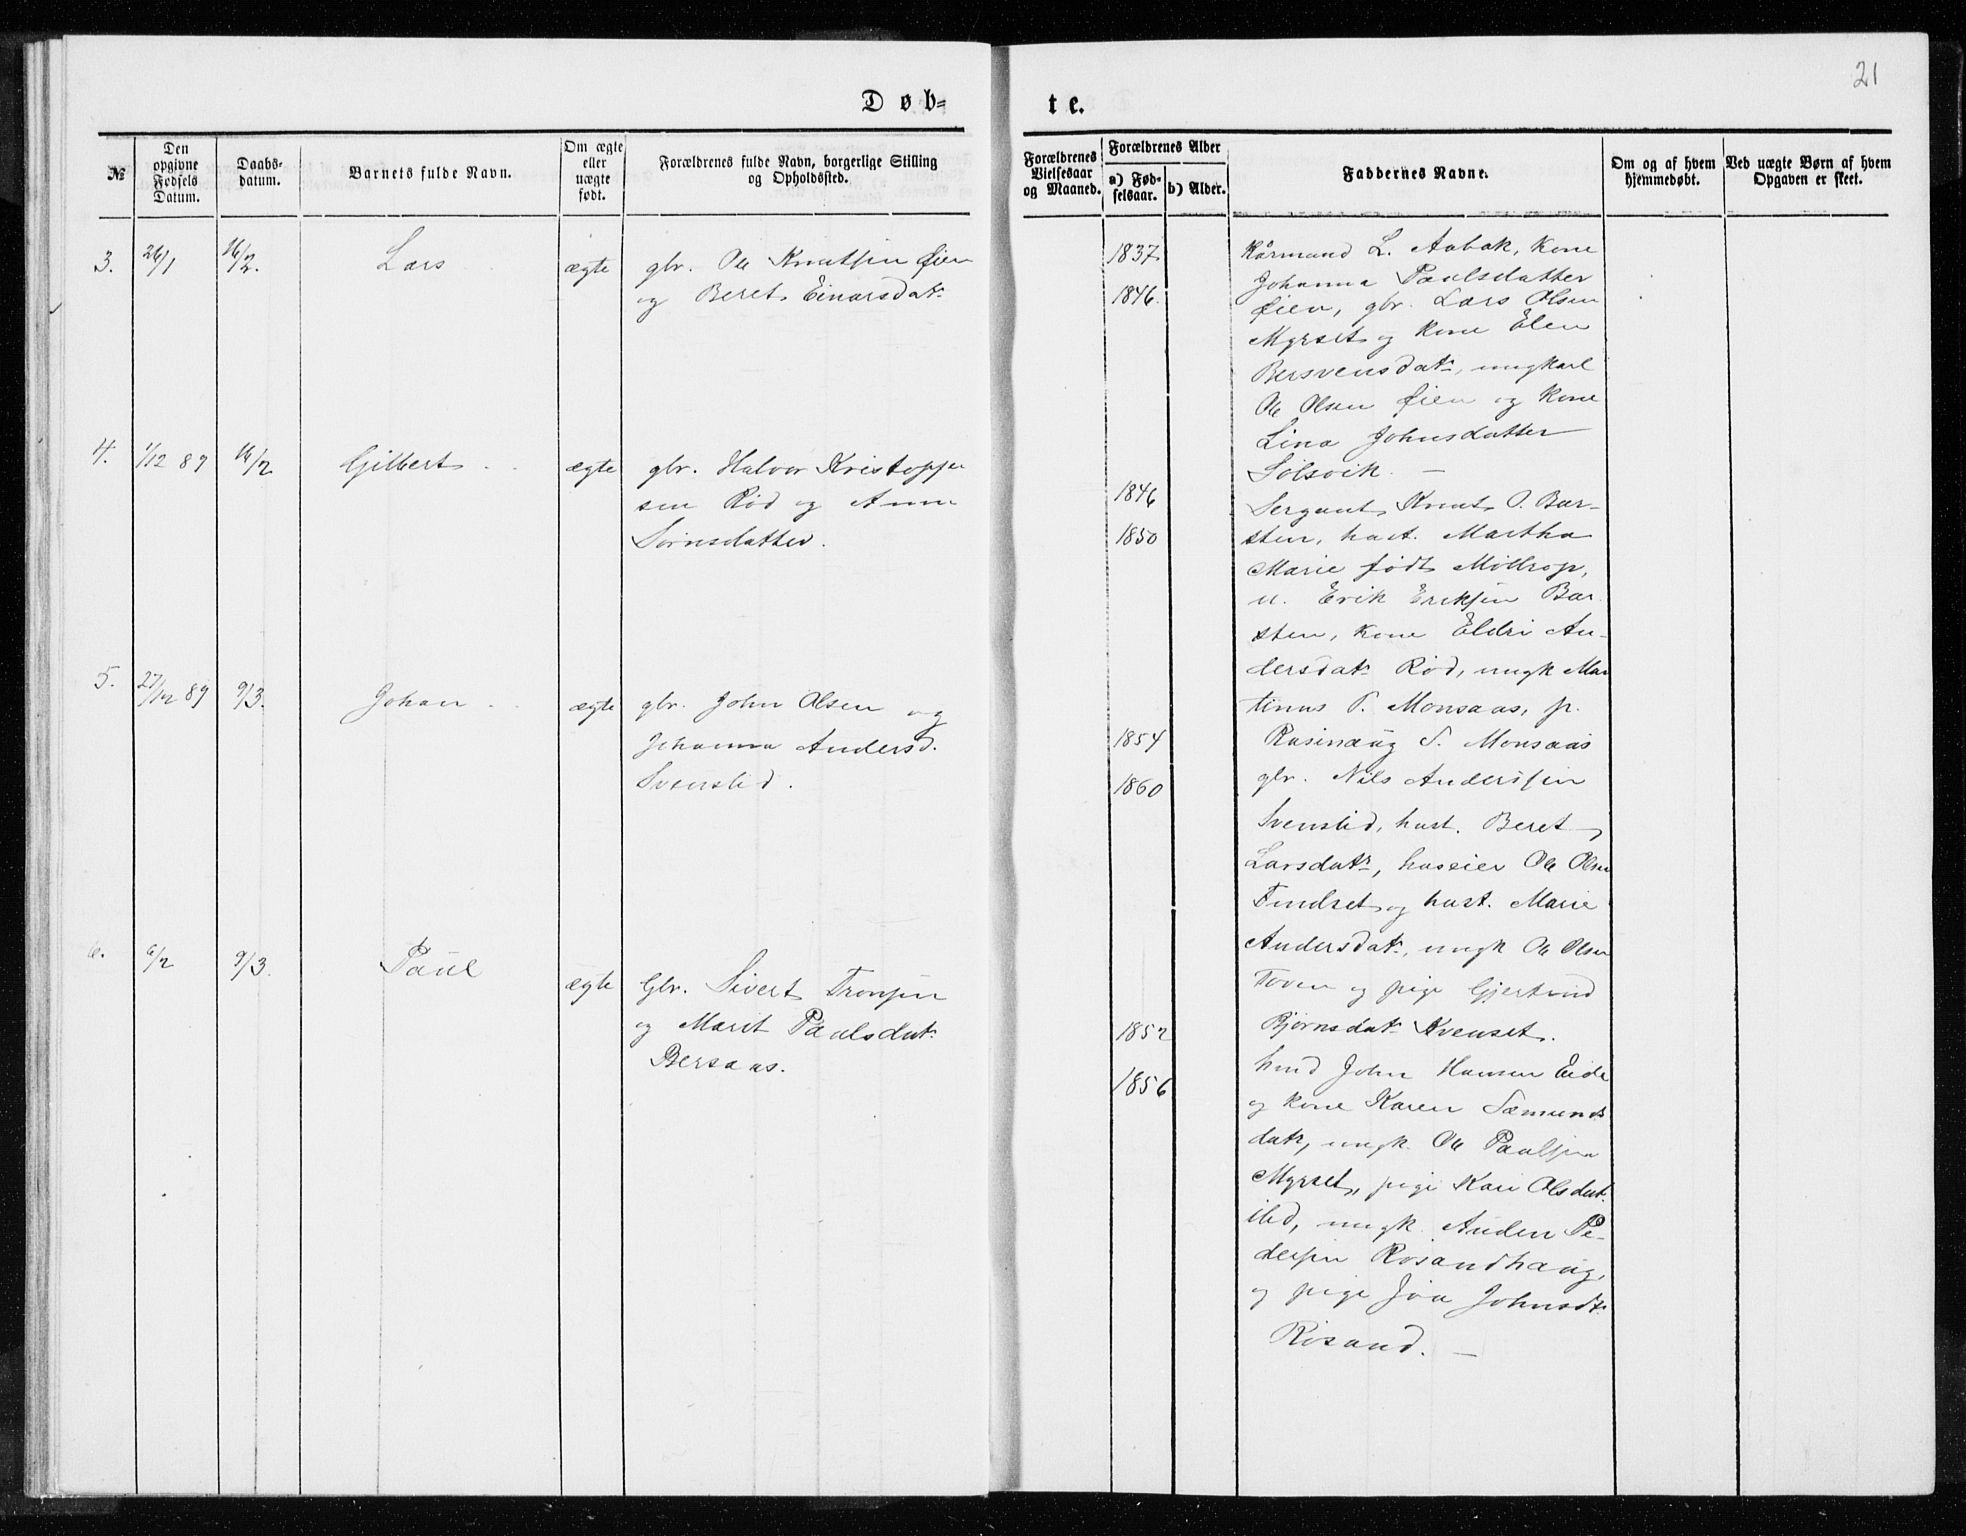 21
Døb=
te.
№
Den opgivne Fødsels Datum.
Daabs- datum.
Barnets fulde Navn.
Om ægte eller uægte født.
Forældrenes fulde Navn, borgerlige Stilling og Opholdssted.
Forældrenes Vielsesaar og Maaned.
Forældrenes Alder
a) Fød- selsaar.
b) Alder.
Faddernes Navne.
Om og af hvem hjemmedøbt.
Ved uægte Børn af hvem Opgaven er skeet.
3.
26/1
16/2.
Lars
ægte
gbr. Ole Knutsen Øien
og Beret Einarsdat.
1837
1846.
Kårmand L. Aabak, kone
Johanna Paulsdatter
Øien, gbr. Lars Olsen
Myrset og kone Elen
Bersvensdat, ungkarl
Ole Olsen Øien og kone
Lina Johnsdatter
Solsvik. —
4.
1/12 89
16/2
Gilbert
ægte
gbr. Halvor Kristoffer
sen Rød og Anne
Sørnsdatter.
1846
1850
Sergant Knut O. Bar-
sten, hust. Martha
Marie født Moltrop,
u. Erik Eriksen Bar
sten, kone Eldri An-
dersdat Rød, ungk Mar
tinus P. Monsaas, p.
Rasinaug S. Monsaas
5.
27/12 89
9/3.
Johan
ægte
gbr. John Olsen og
Johanna Andersd.
Svenslid.
1854
1860
gbr. Nils Andersen
Svenslid, hust. Beret
Larsdat, huseier Ole Olsen
Tindset og hust. Marie
Andersdat, ungk Ole Olsen
Toven og pige Gjertrud
Bjørnsdat Kvenset.
6.
6/2
9/3.
Paul
ægte
Gbr. Sivert Tronsen
og Marit Paalsdat.
Bersaas.
1852
1856
hmd John Hansen Eide
og kone Karen Sæmunds
dat, ungk. Ole Paulsen
Myrset, pige Kari Olsdat.
ibd, ungk. Auden Pe-
dersen Rosandhaug,
og pige Johnsdt.
Rosand. —